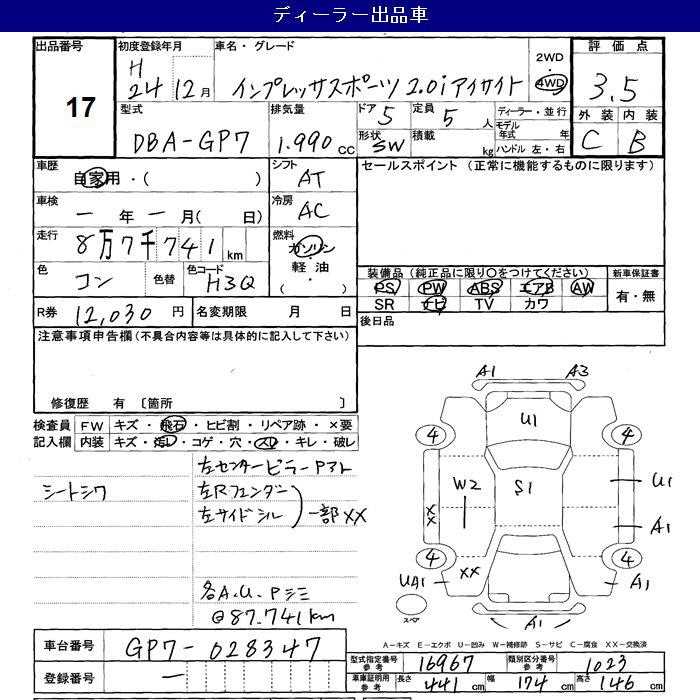 ディーラー出品車
出品番号 初度登録年月 車名・グレード 2WD 4WD 評価点
17 H24 12月 インプレッサスポーツ 2.0iアイサイト 3.5
型式 排気量 ドア 5 定員 5人 ディーラー・並行 外装 内装
DBA-GP7 1.990 CC 形状 SW 積載 kg モデル年式 年 C B
ハンドル 左・右
車歴 自家用・( ) シフト AT セールスポイント (正常に機能するものに限ります)
車検 一年一月( 日) 冷房 AC
走行 8万7千741km 燃料 ガソリン・軽油・( )
色 コン 色替 色コード H3Q
装備品(純正品に限り○をつけてください) 新車保証書
PS PW ABS エアB AW 有・無
SR ナビ TV カワ
R券 12,030円 名変期限 月 日 後日品
注意事項申告欄(不具合内容等は具体的に記入して下さい)
修復歴 有 〔箇所 〕
検査員記入欄 FW キズ・飛石・ヒビ割・リペア跡・×要
内装 キズ・汚レ・コゲ・穴・スレ・キレ・破レ
シートシワ
左センターピラーPアト
左Rフェンダー
左サイドシル 一部XX
各A.U.Pシミ
@87.741km
A1 A3
U1
4 4
W2 S1 U1
XX A1
4 4
UA1 XX A1
スペア A1
A-キズ E-エクボ U-凹み W-補修跡 S-サビ C-腐食 XX-交換済
車台番号 GP7-028347
登録番号 一
型式指定番号 参考 16967 類別区分番号 参考 1023
車庫証明用 参考 長さ 441cm 幅 174cm 高さ 146cm